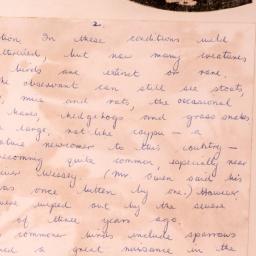 2.
In these conditions wild
but now many creatures
birds are extinct or rare.
he observant can still see stoats,
mice and rats, the occasional
hares, hedgehogs and grass snakes
large, rat-like coypu - a
newcomer to this country -
becoming quite common, especially near
(Mr Owen said his
was once bitten by one.) However
were wiped out by the severe
of three years ago.
commoner birds include sparrows
a great nuisance in the